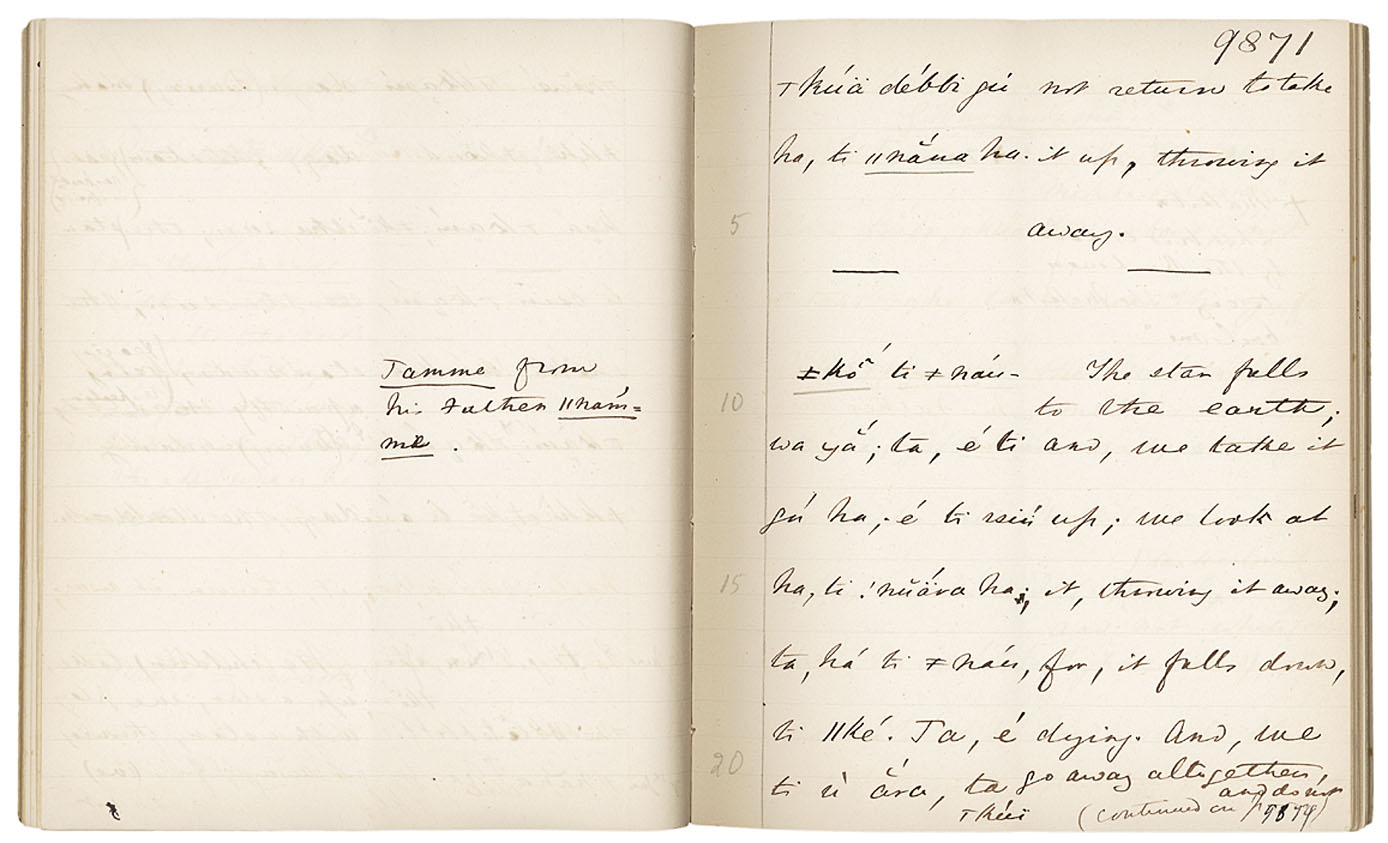 Tamme from
his Father ǁnám=
me .
9871
débbi gú not return to take
ha, ti ǁnắŭa ha. it up, throwing it
5
away.
ti ǂnáu- The star falls
10
to the earth;
wa yắ; ta, é ti and, we take it
gú ha; é ti up; we look at
15
ha, ti ha; it, throwing it away;
ta, há ti ǂnáu, for, it falls down,
ti ǁké. Ta, é dying. And, we
20
ti ú ắra, ta go away altogether,
and do not
(continued on